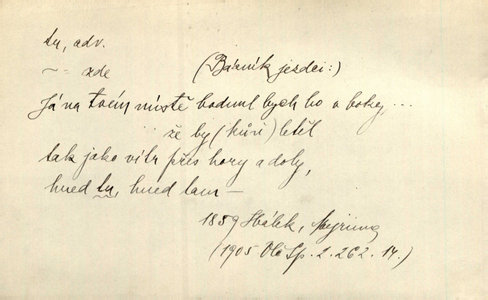 tu, adv.
~ zde (Básník jezdci:)
Já na tvém místě bodnul bych ho v boky...
že by (kůň) letěl
tak jako vítr přes hory a doly,
hned tu, hned tam —
1859 Hálek,
(1905 Otč Sp. 2. 262. 14.)